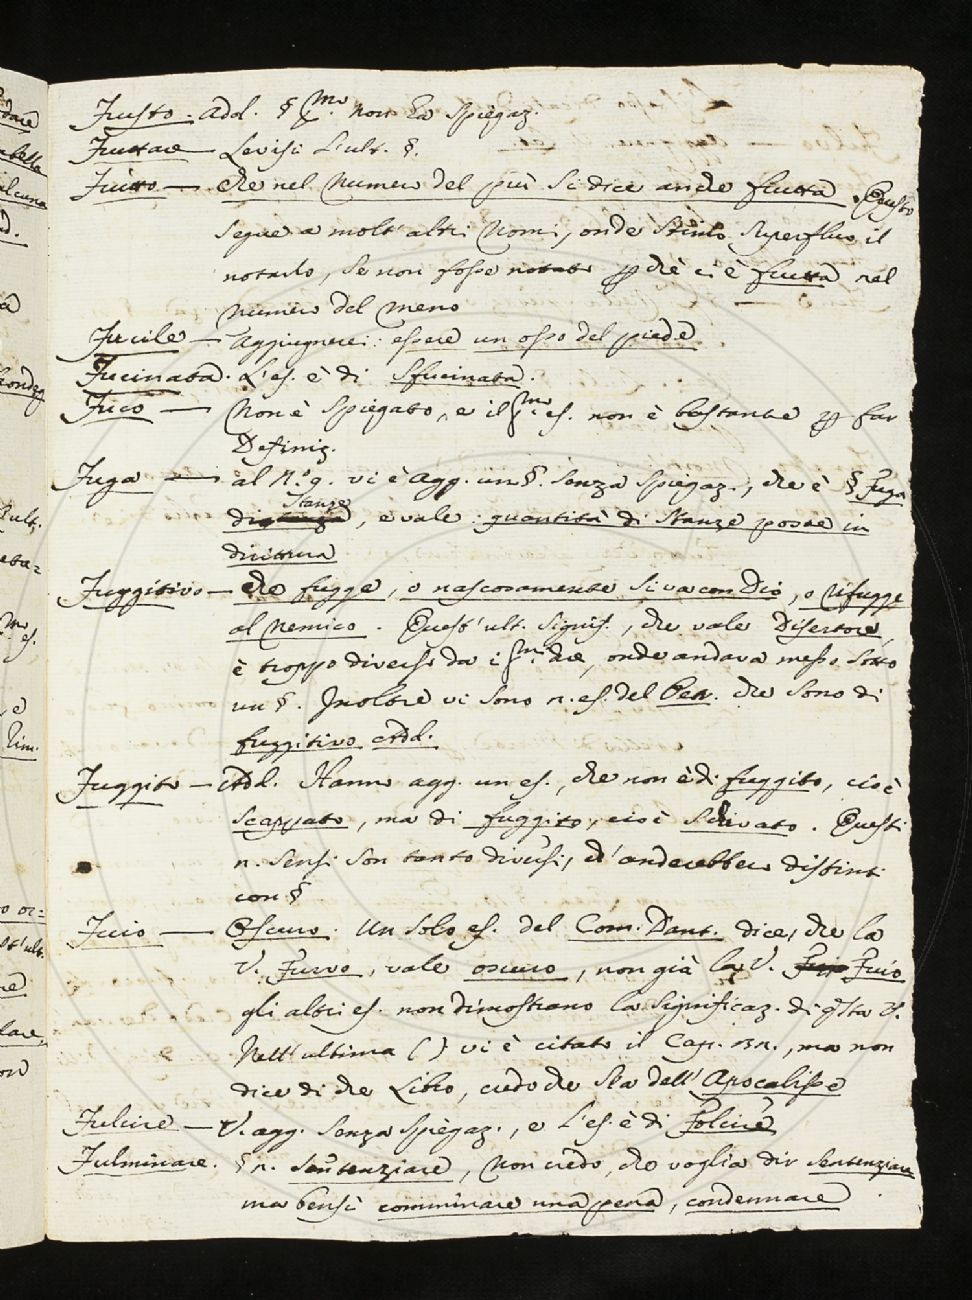 Frusto. Add. § Pmo. non ha spiegaz.
Fruttare — Levisi l'ult. §.
Frutto — che nel numero del più si dice anche frutta. Questo
segue a molt'altri Nomi, onde stimo superfluo il
notarlo, se non fosse notato p chè ci è frutta nel
numero del meno
Fucile — Aggiugnerei: essere un osso del piede
Fucinata. L'es. è di Sfucinata.
Fuco — Non è spiegato, e il Pmo. es. non è bastante p far
Definiz.
Fuga — al N.° 9. vi è agg. un §. senza spiegaz., che è § Fuga
di Stanze, e vale: quantità di Stanze poste in
dirittura
Fuggitivo — che fugge, o nascosamente si va con Dio, o rifugge
al nemico. Quest'ult. signif., che vale Disertore,
è troppo diverso da i Pmi. due, onde andava messo sotto
un §. Inoltre vi sono n. es. del Bem. che sono di
fuggitivo Add.
Fuggito — Add. Hanno agg. un es., che non è di fuggito, cioè
scappato, ma di fuggito, cioè schivato. Questi
n. sensi son tanto diversi, ch'anderebber distinti
con §
Fuio — Oscuro. Un solo es. del Com. Dant. dice, che la
V. Furvo, vale oscuro, non già la V. Fuio
gli altri es. non dimostrano la significaz. di qsta V.
Nell'ultima ( ) vi è citato il Cap. , ma non
dice di che Libro, credo che sia dell'Apocalisse
Fulcire — V. agg. senza spiegaz., e l'es. è di Folcire
Fulminare. § n. sentenziare, Non credo, che voglia dir sentenziare
ma bensì comminare una pena, condennare